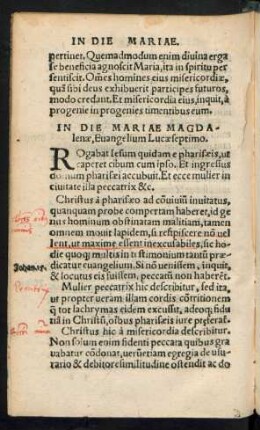 IN DIE MARIAE.
pertinet. Quemadmodum enim diuina erga
se beneficia agnoscit Maria, ita in spiritu per
sentiscit. Oẽs homines eius misericordiæ,
quã sibi deus exhibuerit participes futuros,
modo credant. Et misericordia eius, inquit, à
progenie in progenies timentibus eum.
IN DIE MARIAE MAGDA-
lenæ, Euangelium Lucæ septimo.
ROgabat Iesum quidam e pharisæis, ut
caperet cibum cum ipso. Et ingressus
domum pharisæi accubuit. Et ecce mulier in
ciuitate illa peccatrix &c.
Christus à pharisæo ad cõuiuiũ inuitatus,
quanquam probe compertam haberet, id ge
nus hominum obstinatam malitiam, tamen
omnem mouit lapidem, si respiscere nõ uel
lent, ut maxime essent inexcusabiles, sic ho
die quoq; multis in testimonium tantũ præ
dicatur euangelium. Si nõ uenissem, inquit,
& locutus eis fuissem, peccatũ non haberẽt.
Iohan. 15.
Mulier peccatrix hic describitur, sed ita,
ut propter ueram illam cordis cõtritionem
q̃ tot lachrymas eidem excussit, adeoq; fidu
tiã in Christũ, oĩbus pharisæis iure præferat̃
Christus hic à misericordia describitur.
Non solum enim fidenti peccara quibus gra
uabatur cõdonat, uerũetiam egregia de usu-
rario & debitore similitudine ostendit ac do